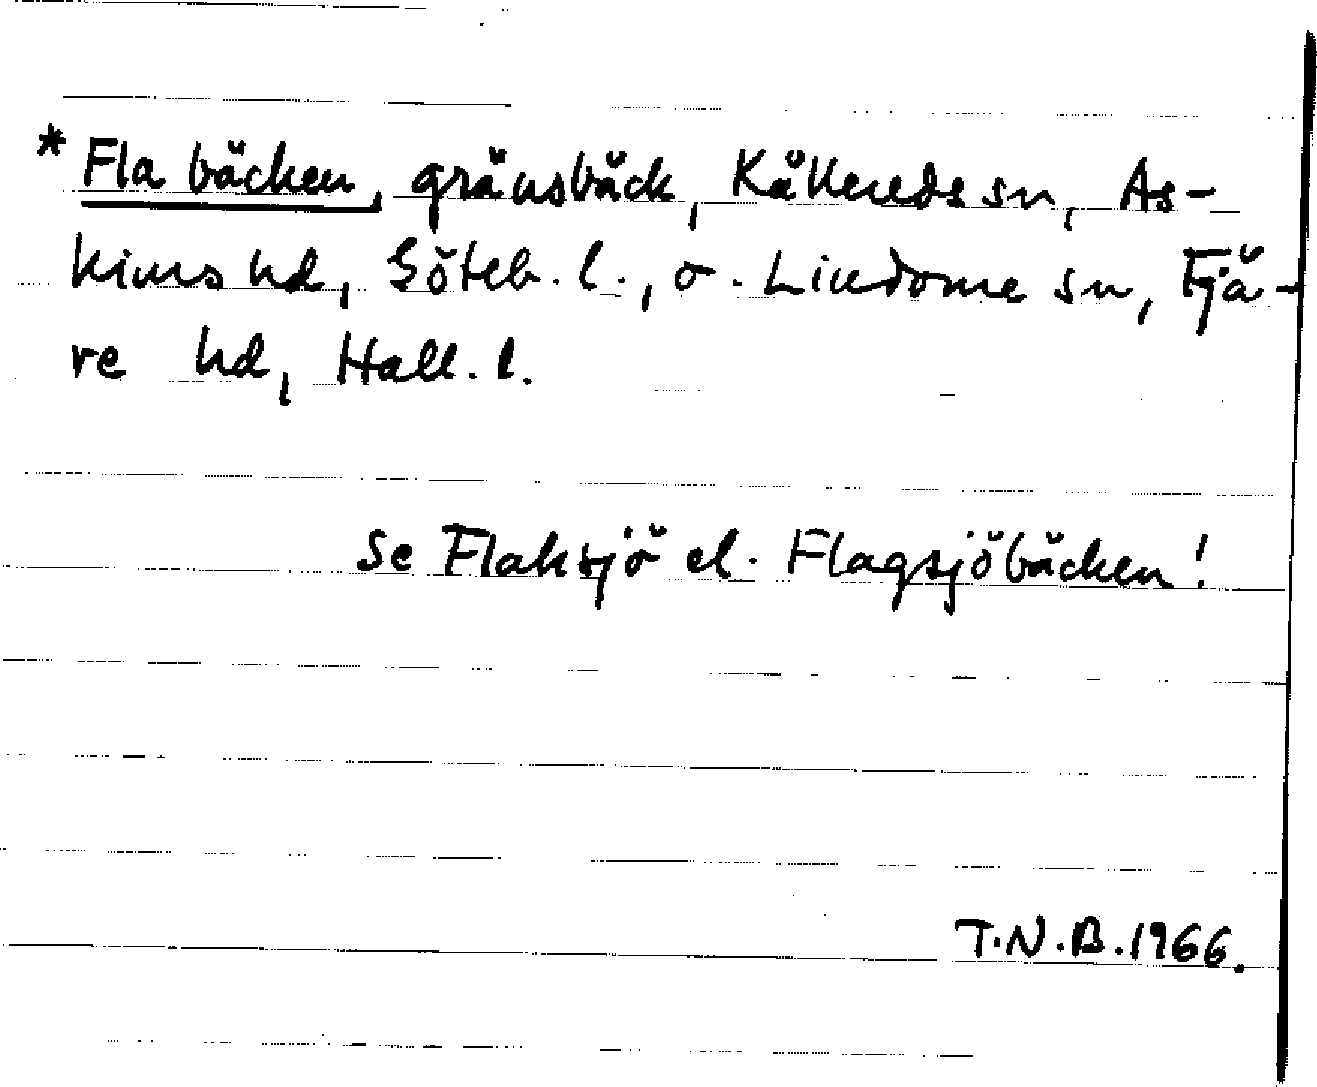 * Fla bäcken, gränsbäck, Kållereds sn, As-
kims hd, Göteb. l., o. Lindome sn, Fjä-
re hd, Hall. l.
Se Flaksjö el. Flagsjöbäcken!
T.N.B. 1966.